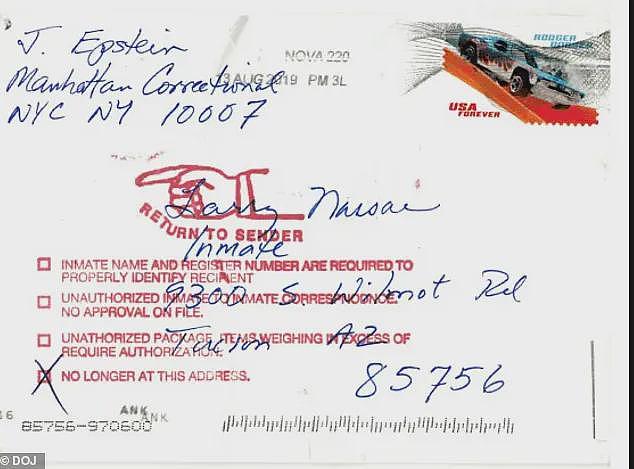 J. Epstein
Manhattan Correctional
NYC NY 10007
NOVA 220
13 AUG 2019 PM 3L
RODGER DODGER
USA
FOREVER
RETURN TO SENDER
Larry Nassar
Inmate
9300 S Wilmot Rd
Tucson AZ
85756
INMATE NAME AND REGISTER NUMBER ARE REQUIRED TO
PROPERLY IDENTIFY RECIPIENT
UNAUTHORIZED INMATE TO INMATE CORRESPONDENCE.
NO APPROVAL ON FILE.
UNAUTHORIZED PACKAGE. ITEMS WEIGHING IN EXCESS OF
REQUIRE AUTHORIZATION.
X NO LONGER AT THIS ADDRESS.
ANK
ANK
85756-970600
© DOJ